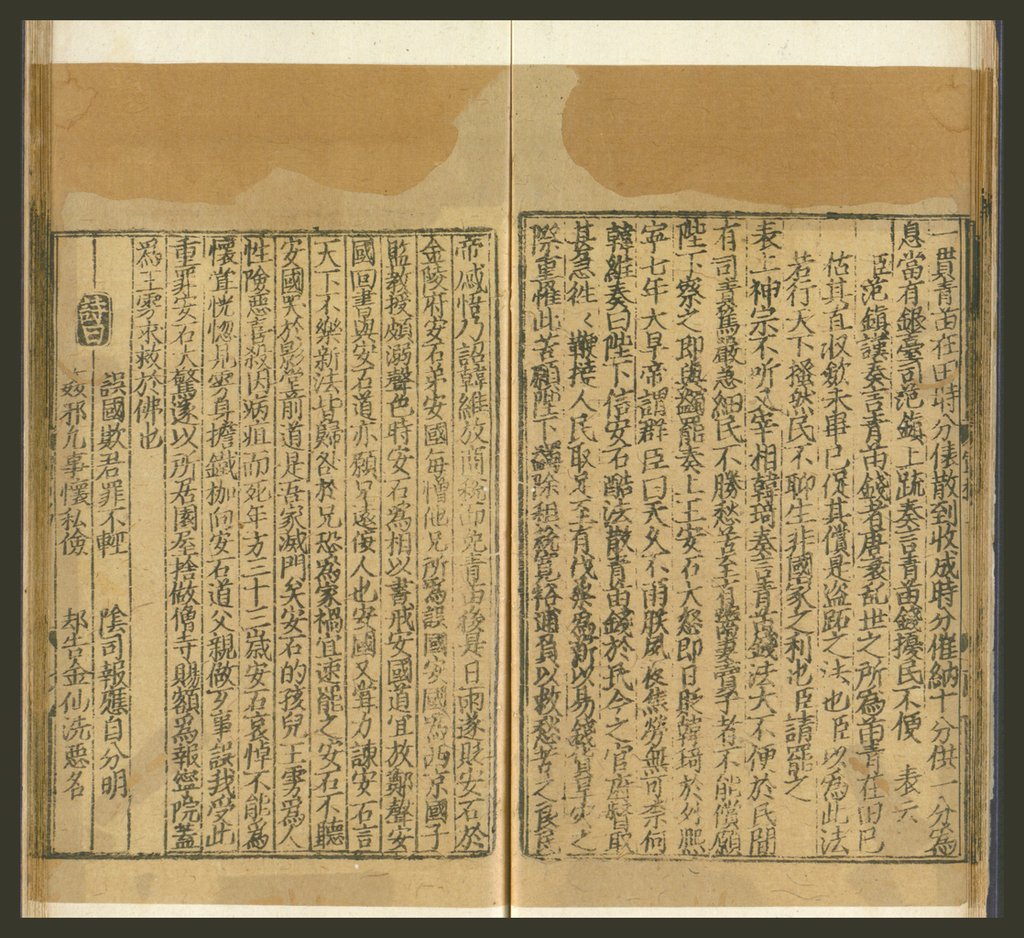 一貫青苗在田時分俵散到收成時分催納十分供一分爲
息當有銀臺司范鎮上䟽奏言青苗錢擾民不便 表云
臣范鎮謹奏言青苗錢者唐衰乱世之所爲苗青在田巳
估其直収歛未畢巳促其償是盗跖之法也臣以爲此法
若行天下搔然民不聊生非國家之利也臣請罷之
表上神宗不听又宰相韓琦奏言青苗錢法大不便於民間
有司責篤嚴急細民不勝愁苦至有鬻妻賣子者不能償願
陛下察之即與蠲罷奏上王安石大怒即日貶韓琦於外熈
寧七年大旱帝謂群臣曰天久不雨朕夙夜焦勞無可柰何
韓維奏曰陛下信安石酷法散青苗錢於民今之官府督取
甚急徃〻鞭撻人民取足至有伐桑爲薪以易錢貨旱灾之
際重罹此苦願陛下蠲除租稅寬裕逋負以救愁苦之良民
帝感悟乃詔韓維放商稅而免青苗後是日雨遂貶安石於
金陵府安石弟安國每憎他兄所爲誤國安國爲西京國子
監教授頗溺聲色時安石爲相以書戒安國道宜放鄭聲安
國回書與安石道亦願兄遠佞人也安國又聲力諫安石言
天下不樂新法皆歸咎於兄恐爲家禍宜速罷之安石不聽
安國哭於影堂前道是吾家滅門矣安石的孩兒王雱爲人
性險惡喜殺因病疽而死年方三十三歲安石哀悼不能爲
懷嘗恍惚見雱身擔鐵枷向安石道父親做歹事誤我受此
重罪安石大驚遂以所居園屋捨做僧寺賜額爲報寧院蓋
爲王雱求救於佛也
詩曰
誤國欺君罪不輕 陰司報應自分明
姦邪凢事懷私儉 却告金仙洗惡名